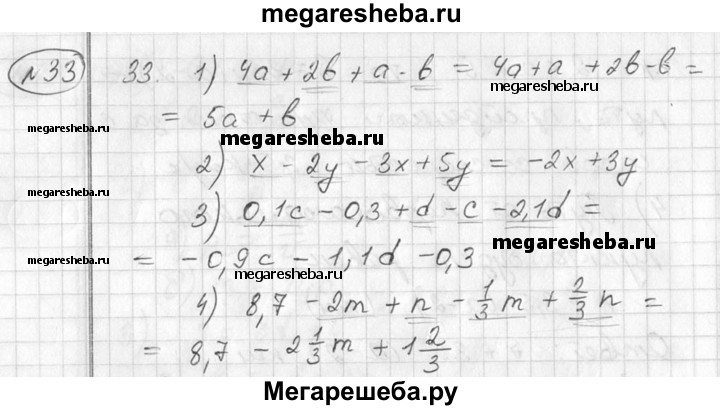 megaresheba.ru
№33 33. 1) 4a + 2b + a - b = 4a + a + 2b - b =
= 5a + b
megaresheba.ru
megaresheba.ru
2) x - 2y - 3x + 5y = -2x + 3y
megaresheba.ru
3) 0,1c - 0,3 + d - c - 2,1d =
megaresheba.ru
= -0,9c - 1,1d - 0,3
megaresheba.ru
megaresheba.ru
4) 8,7 - 2m + n - 1/3 m + 2/3 n =
= 8,7 - 2 1/3 m + 1 2/3
megaresheba.ru
Мегарешеба.ру